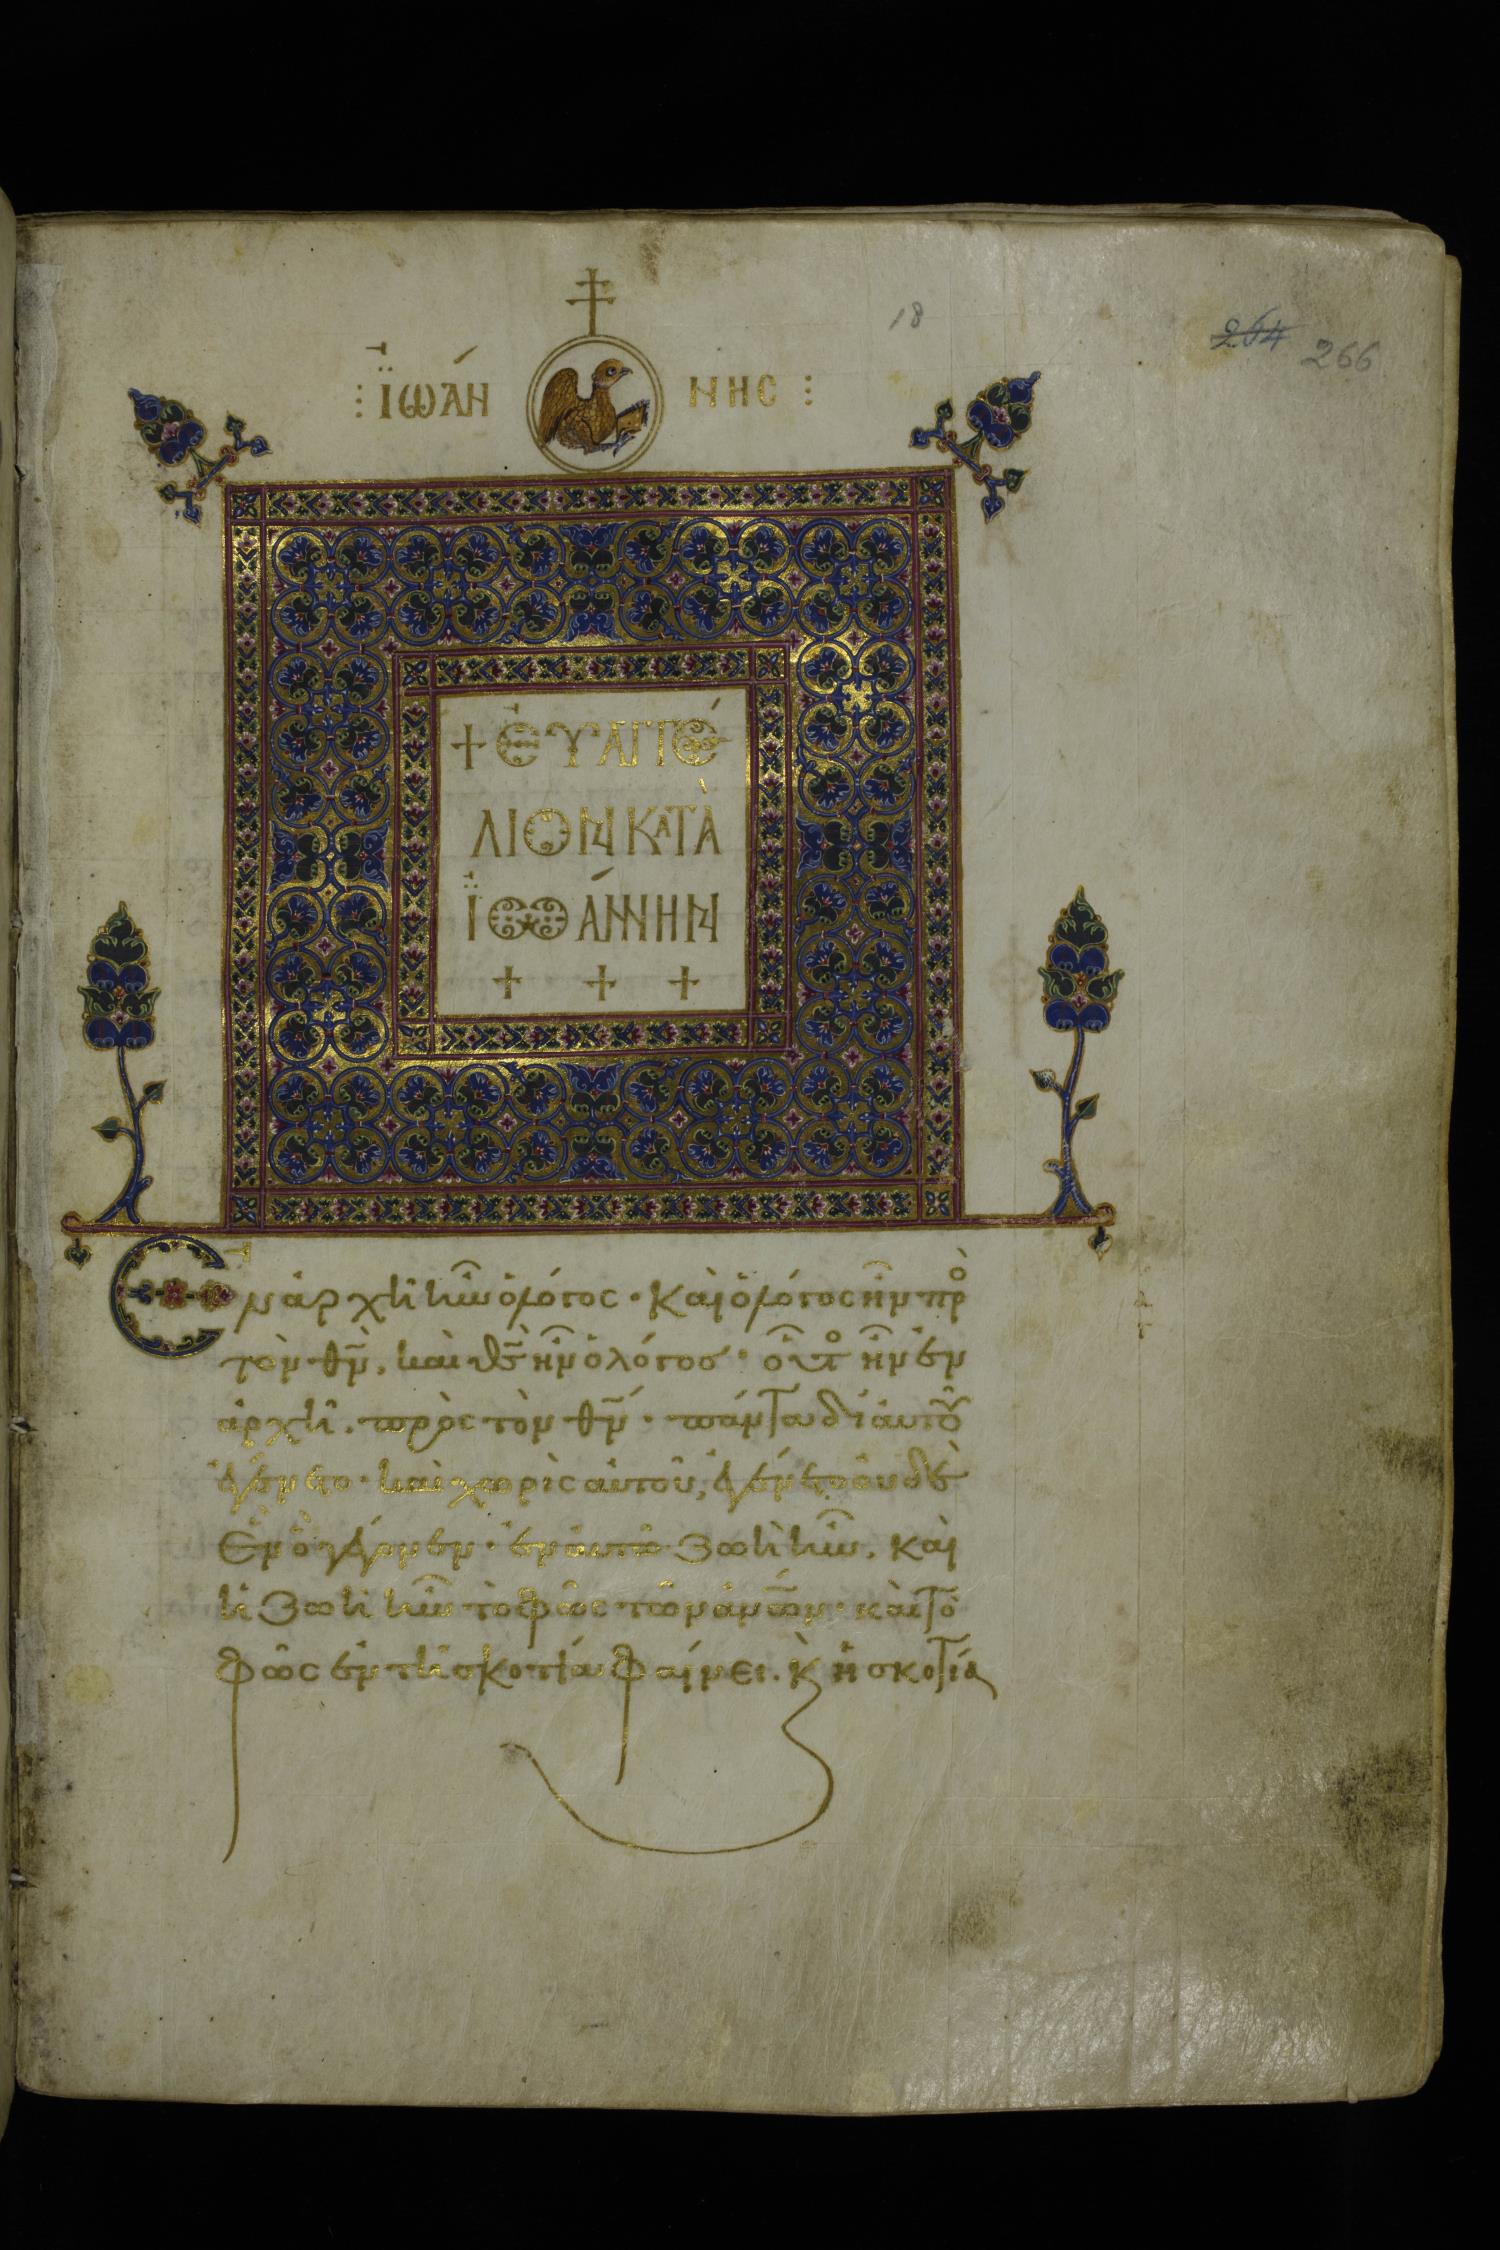 18
264 266
⁝ ἸΩΆΝ ΝΗC ⁝
+ ΕΥΑΓΓΈ
ΛΙΟΝ ΚΑΤᾺ
ἸΩΆΝΝΗΝ
+ + +
Ἐν ἀρχῆ ἦν ὁ λόγος · Καὶ ὁ λόγος ἦν πρὸ
τὸν θν̄, καὶ θς̄ ἦν ὁ λόγος · οὗτο ἦν ἐν
ἀρχῆ, πρὸς τὸν θν̄ · πάντα δι αὐτοῦ
ἐγένετο · καὶ χωρὶς αὐτοῦ, ἐγένετο οὐδὲ
Ἓν ὃ γέγονεν · ἐν αὐτῶ ζωὴ ἦν, καὶ
ἡ ζωὴ ἦν τὸ φῶς τῶν ἀνω̄ν · καὶ τὸ
φῶς ἐν τῆ σκοτία φαίνει. κ̀ ἡ σκοτία